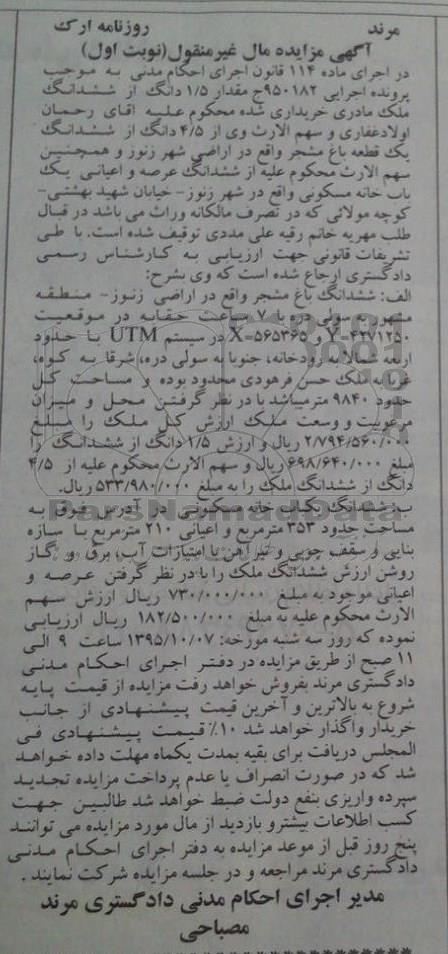 مرند روزنامه ارک
آگهی مزایده مال غیرمنقول(نوبت اول)
در اجرای ماده ۱۱۴ قانون اجرای احکام مدنی به موجب
پرونده اجرایی ۹۵۰۱۸۲ج مقدار ۱/۵ دانگ از ششدانگ
ملک مادری خریداری شده محکوم علیه اقای رحمان
اولادغفاری و سهم الارث وی از ۴/۵ دانگ از ششدانگ
یک قطعه باغ مشجر واقع در اراضی شهر زنوز و همچنین
سهم الارث محکوم علیه از ششدانگ عرصه و اعیانی یک
باب خانه مسکونی واقع در شهر زنوز- خیابان شهید بهشتی-
کوچه مولائی که در تصرف مالکانه وراث می باشد در قبال
طلب مهریه خانم رقیه علی مددی توقیف شده است. با طی
تشریفات قانونی جهت ارزیابی به کارشناس رسمی
دادگستری ارجاع شده است که وی بشرح:
الف: ششدانگ باغ مشجر واقع در اراضی زنوز- منطقه
مشهور به سولی دره با ۷ ساعت حقابه در موقعیت
Y-۴۲۷۱۲۵۰ و X-۵۶۵۳۶۵ در سیستم UTM با حدود
اربعه شمالا به رودخانه، جنوبا به سولی دره، شرقا به کوه،
غربا به ملک حسن فرهودی محدود بوده و مساحت کل
حدود ۹۸۴۰ مترمیباشد با در نظر گرفتن محل و میزان
مرغوبیت و وسعت ملک ارزش کل ملک را مبلغ
۲/۷۹۴/۵۶۰/۰۰۰ ریال و ارزش ۱/۵ دانگ از ششدانگ را
مبلغ ۶۹۸/۶۴۰/۰۰۰ ریال و سهم الارث محکوم علیه از ۴/۵
دانگ از ششدانگ ملک را به مبلغ ۵۳۳/۹۸۰/۰۰۰ ریال.
ب: ششدانگ یکباب خانه مسکونی در آدرس فوق به
مساحت حدود ۳۵۳ مترمربع و اعیانی ۲۱۰ مترمربع با سازه
بنایی و سقف چوبی و تیرآهن با امتیازات آب، برق و گاز
روشن ارزش ششدانگ ملک را با در نظر گرفتن عرصه و
اعیانی موجود به مبلغ ۷۳۰/۰۰۰/۰۰۰ ریال ارزش سهم
الارث محکوم علیه به مبلغ ۱۸۲/۵۰۰/۰۰۰ ریال ارزیابی
نموده که روز سه شنبه مورخه: ۱۳۹۵/۱۰/۰۷ ساعت ۹ الی
۱۱ صبح از طریق مزایده در دفتر اجرای احکام مدنی
دادگستری مرند بفروش خواهد رفت مزایده از قیمت پایه
شروع به بالاترین و آخرین قیمت پیشنهادی از جانب
خریدار واگذار خواهد شد ۱۰٪ قیمت پیشنهادی فی
المجلس دریافت برای بقیه بمدت یکماه مهلت داده خواهد
شد که در صورت انصراف یا عدم پرداخت مزایده تجدید
سپرده واریزی بنفع دولت ضبط خواهد شد طالبین جهت
کسب اطلاعات بیشترو بازدید از مال مورد مزایده می توانند
پنج روز قبل از موعد مزایده به دفتر اجرای احکام مدنی
دادگستری مرند مراجعه و در جلسه مزایده شرکت نمایند.
مدیر اجرای احکام مدنی دادگستری مرند
مصباحی